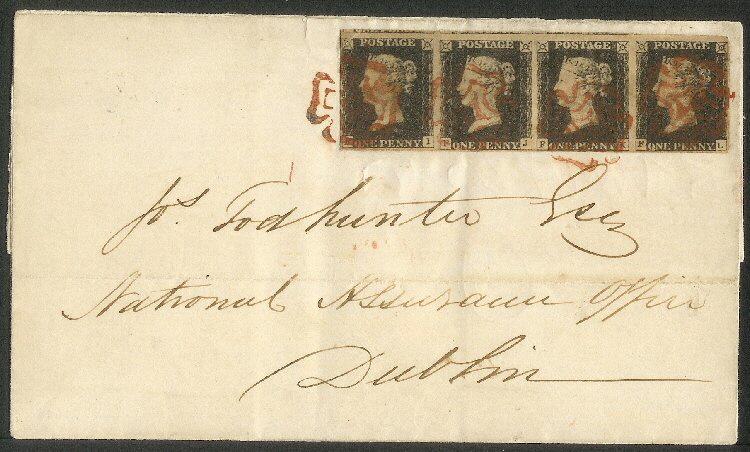 POSTAGE POSTAGE POSTAGE POSTAGE
ONE PENNY I ONE PENNY J F ONE PENNY K F ONE PENNY L
Jos Todhunter Esq
National Assurance Office
Dublin